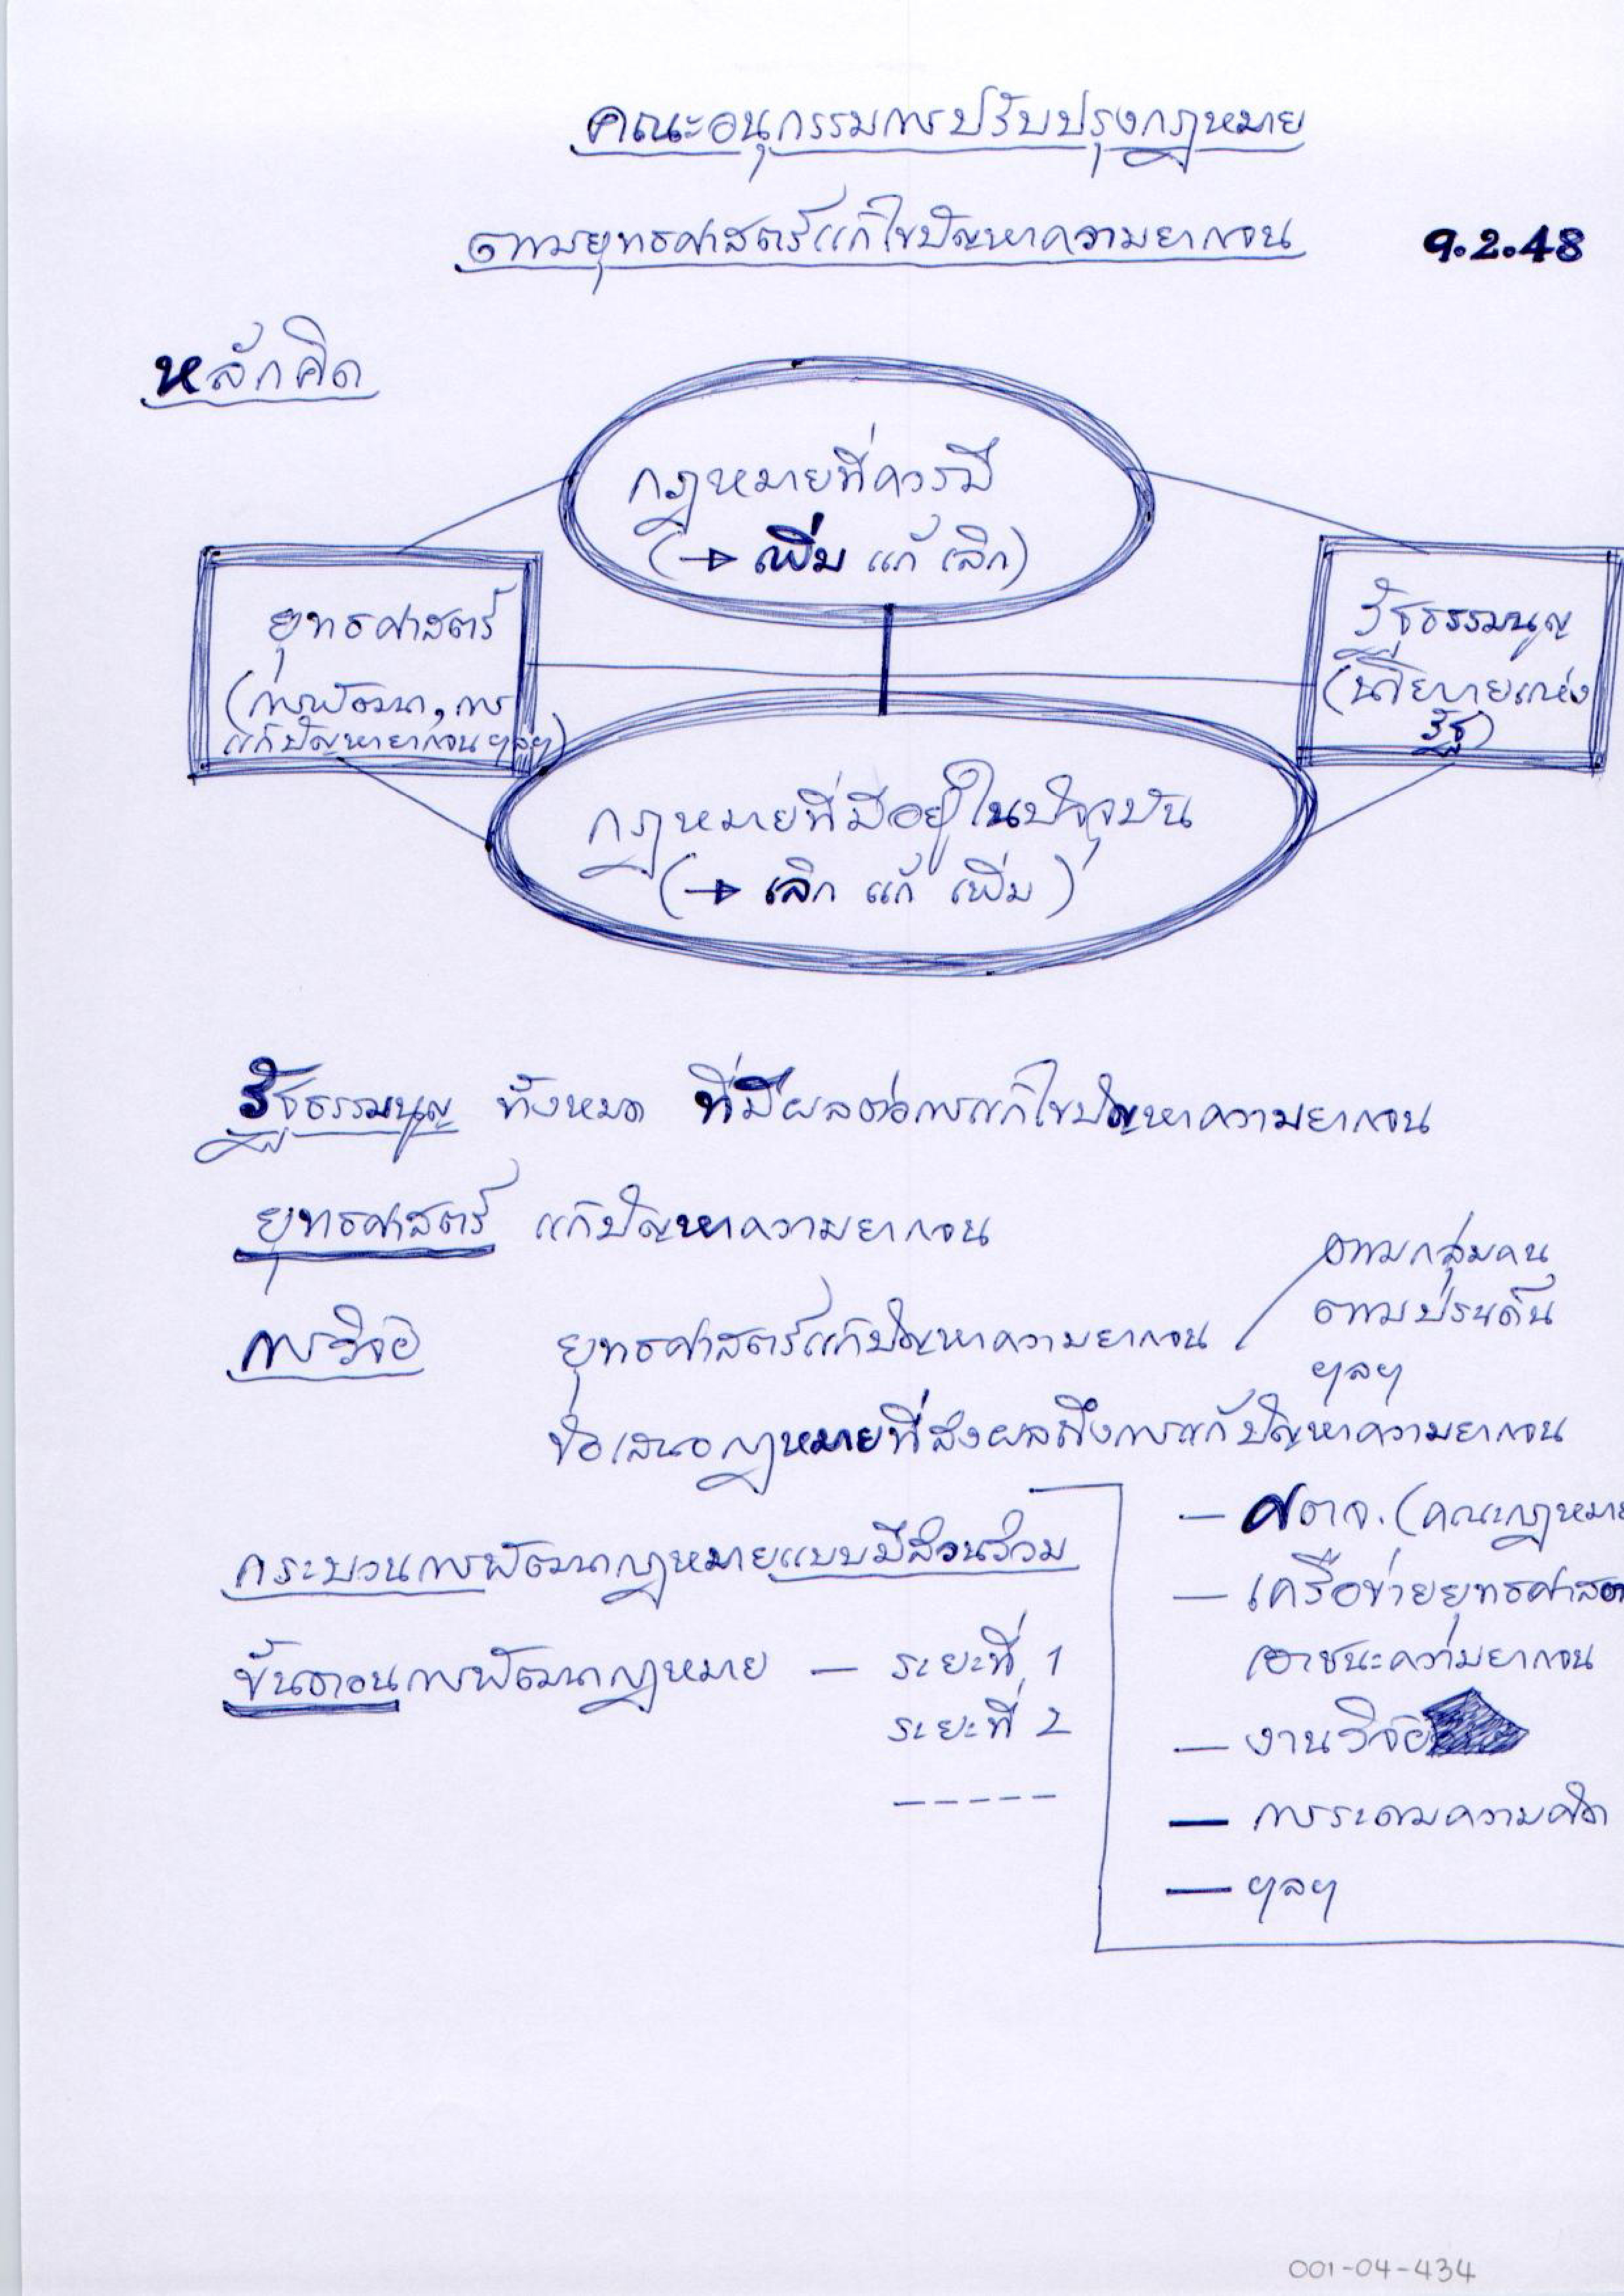 คณะอนุกรรมการปรับปรุงกฎหมาย
ตามยุทธศาสตร์แก้ไขปัญหาความยากจน 9.2.48
หลักคิด
กฎหมายที่ควรมี
(→ เพิ่ม แก้ เลิก)
ยุทธศาสตร์
(การพัฒนา, การ
แก้ปัญหายากจน ฯลฯ)
รัฐธรรมนูญ
(นโยบายแห่ง
รัฐ)
กฎหมายที่มีอยู่ในปัจจุบัน
(→ เลิก แก้ เพิ่ม)
รัฐธรรมนูญ ทั้งหมด ที่มีผลต่อการแก้ไขปัญหาความยากจน
ยุทธศาสตร์ แก้ปัญหาความยากจน
การวิจัย ยุทธศาสตร์แก้ปัญหาความยากจน
ตามกลุ่มคน
ตามประเด็น
ฯลฯ
ข้อเสนอกฎหมายที่ส่งผลถึงการแก้ปัญหาความยากจน
กระบวนการพัฒนากฎหมายแบบมีส่วนร่วม
— ศตจ. (คณะกฎหมาย
— เครือข่ายยุทธศาสต
เอาชนะความยากจน
— งานวิจัย
— การระดมความคิด
— ฯลฯ
ขั้นตอนการพัฒนากฎหมาย — ระยะที่ 1
ระยะที่ 2
-----
001-04-434